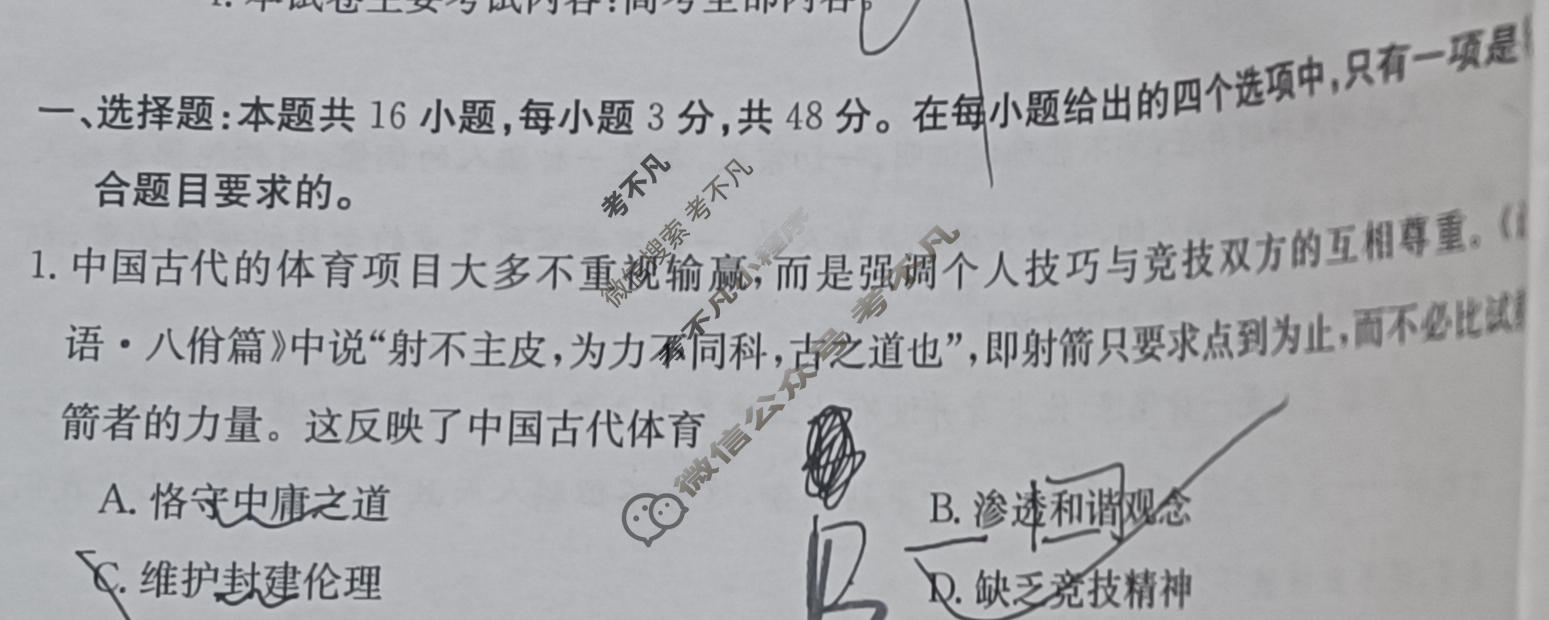 4. 本试卷主要考试内容:高考全部内容。
一、选择题:本题共 16 小题,每小题 3 分,共 48 分。在每小题给出的四个选项中,只有一项是
合题目要求的。
1. 中国古代的体育项目大多不重视输赢,而是强调个人技巧与竞技双方的互相尊重。(
语·八佾篇》中说“射不主皮,为力不同科,古之道也”,即射箭只要求点到为止,而不必比试
箭者的力量。这反映了中国古代体育
A. 恪守中庸之道
B. 渗透和谐观念
C. 维护封建伦理
D. 缺乏竞技精神
B
考不凡
微信搜索 考不凡
考不凡小程序
微信公众号 考不凡